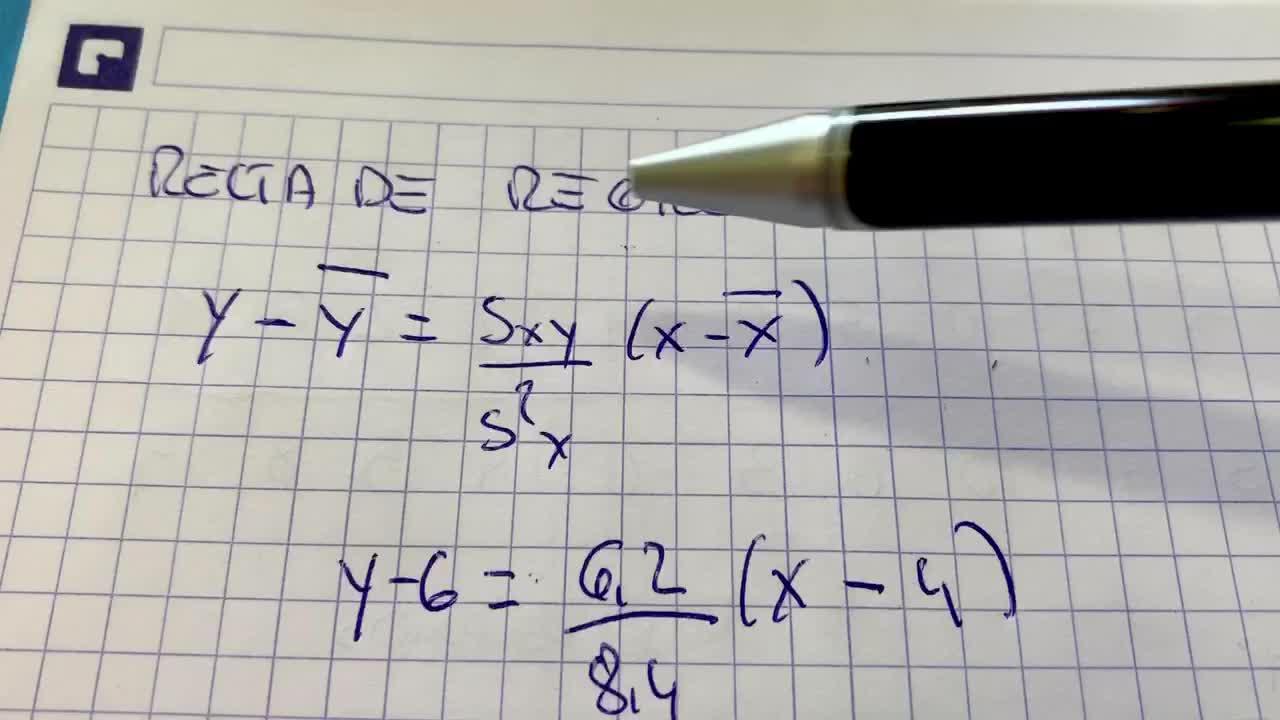 RECTA DE
y - ȳ = Sxy/S²x (x - x̄)
y - 6 = 6,2/8,4 (x - 4)